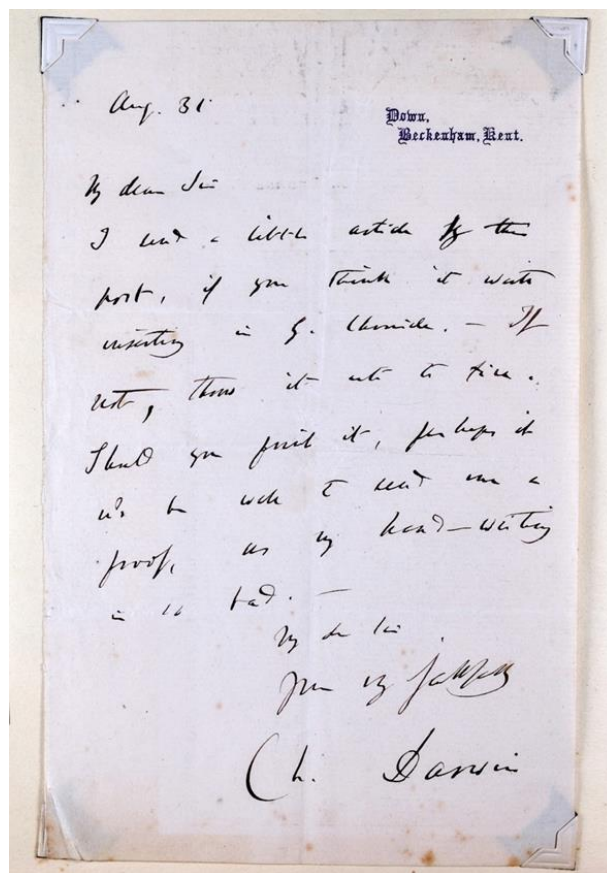 Aug. 31
Down,
Beckenham, Kent.
My dear Sir
I send a little article by this
post, if you think it worth
inserting in G. Chronicle. — If
not, throw it into the fire.
Should you print it, perhaps it
wd be well to send me a
proof, as my hand-writing
is so bad. —
My dear Sir
Yours very faithfully
Ch. Darwin